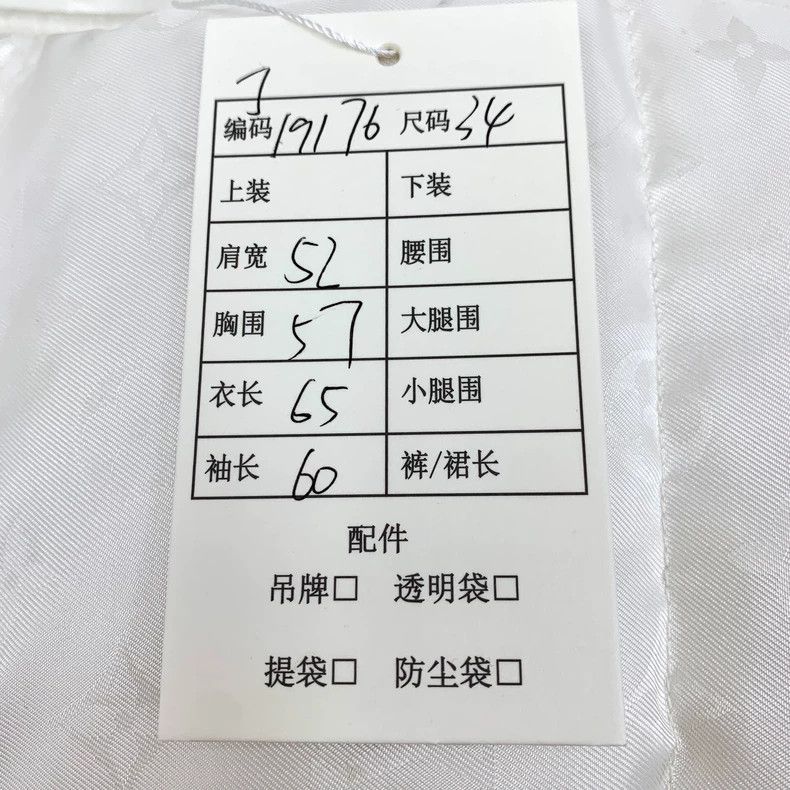 编码 19176 尺码 34
上装 下装
肩宽 52 腰围
胸围 57 大腿围
衣长 65 小腿围
袖长 60 裤/裙长
配件
吊牌□ 透明袋□
提袋□ 防尘袋□